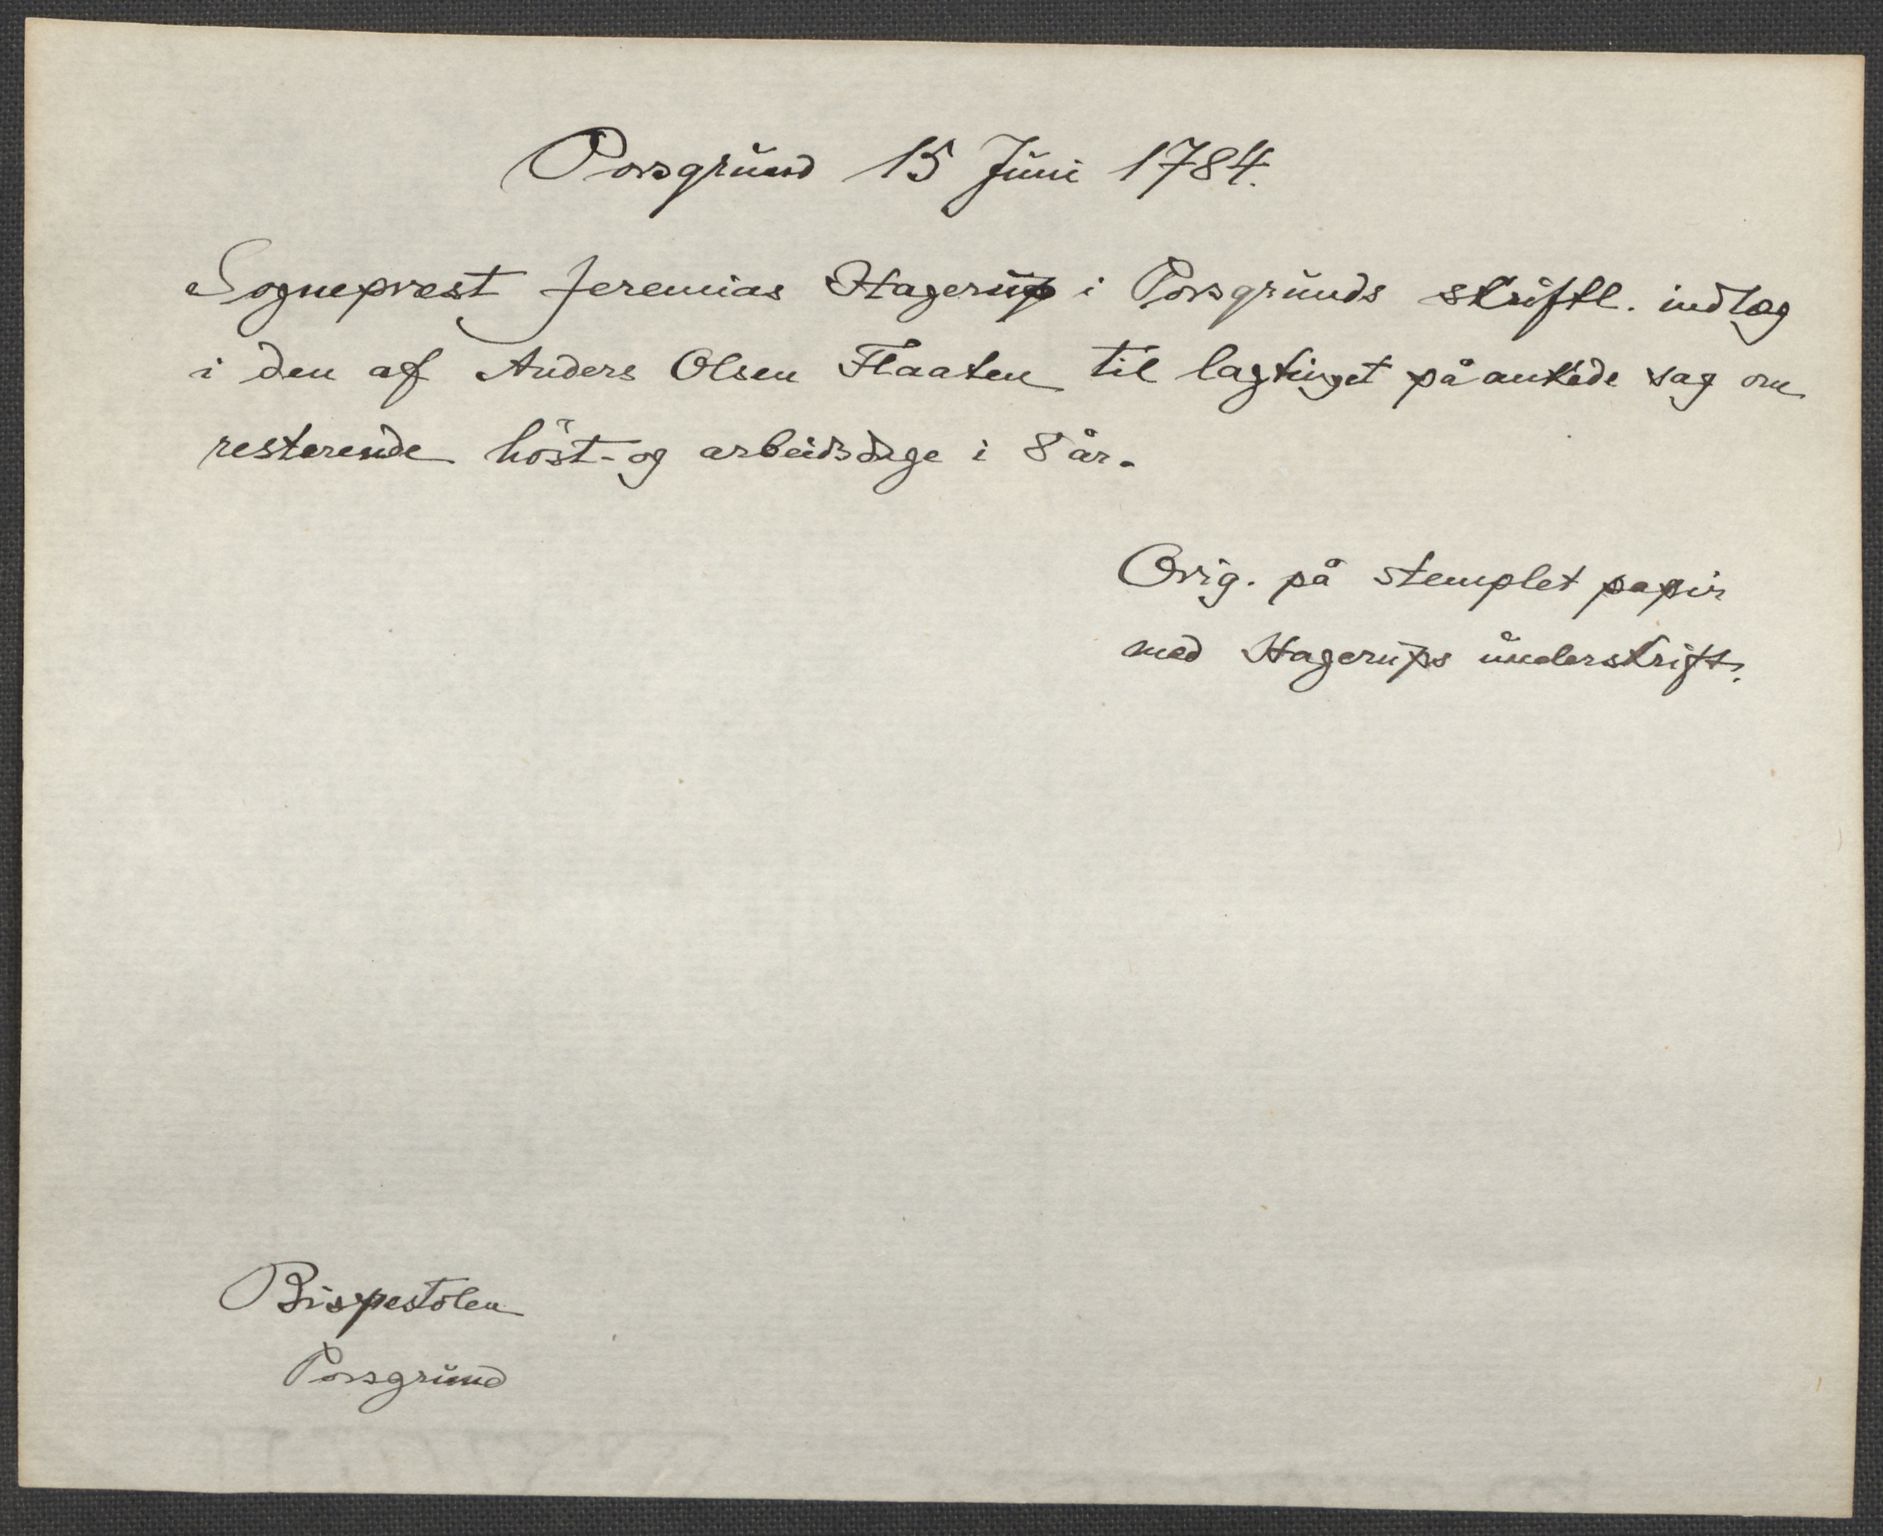 Porsgrund 15 Juni 1784.
Sogneprest Jeremias Hagerup i Porsgrunds skriftl. indlæg
i den af Anders Olsen Flaaten til lagtinget påankede sag om
resterende höst- og arbeidsdage i 8 år.
Orig. på stemplet papir
med Hagerups underskrift.
Bispestolen
Porsgrund